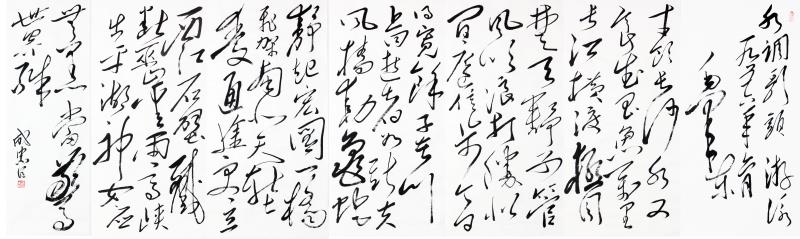 水调歌头 游泳
一九五六年六月
毛泽东
才饮长沙水又
食武昌鱼万里
长江横渡极目
楚天舒不管
风吹浪打胜似
闲庭信步今日
得宽余子在川
上曰逝者如斯夫
风樯动龟蛇
静起宏图一桥
飞架南北天堑
变通途更立
西江石壁截
断巫山云雨高峡
出平湖神女应
无恙当惊
世界殊